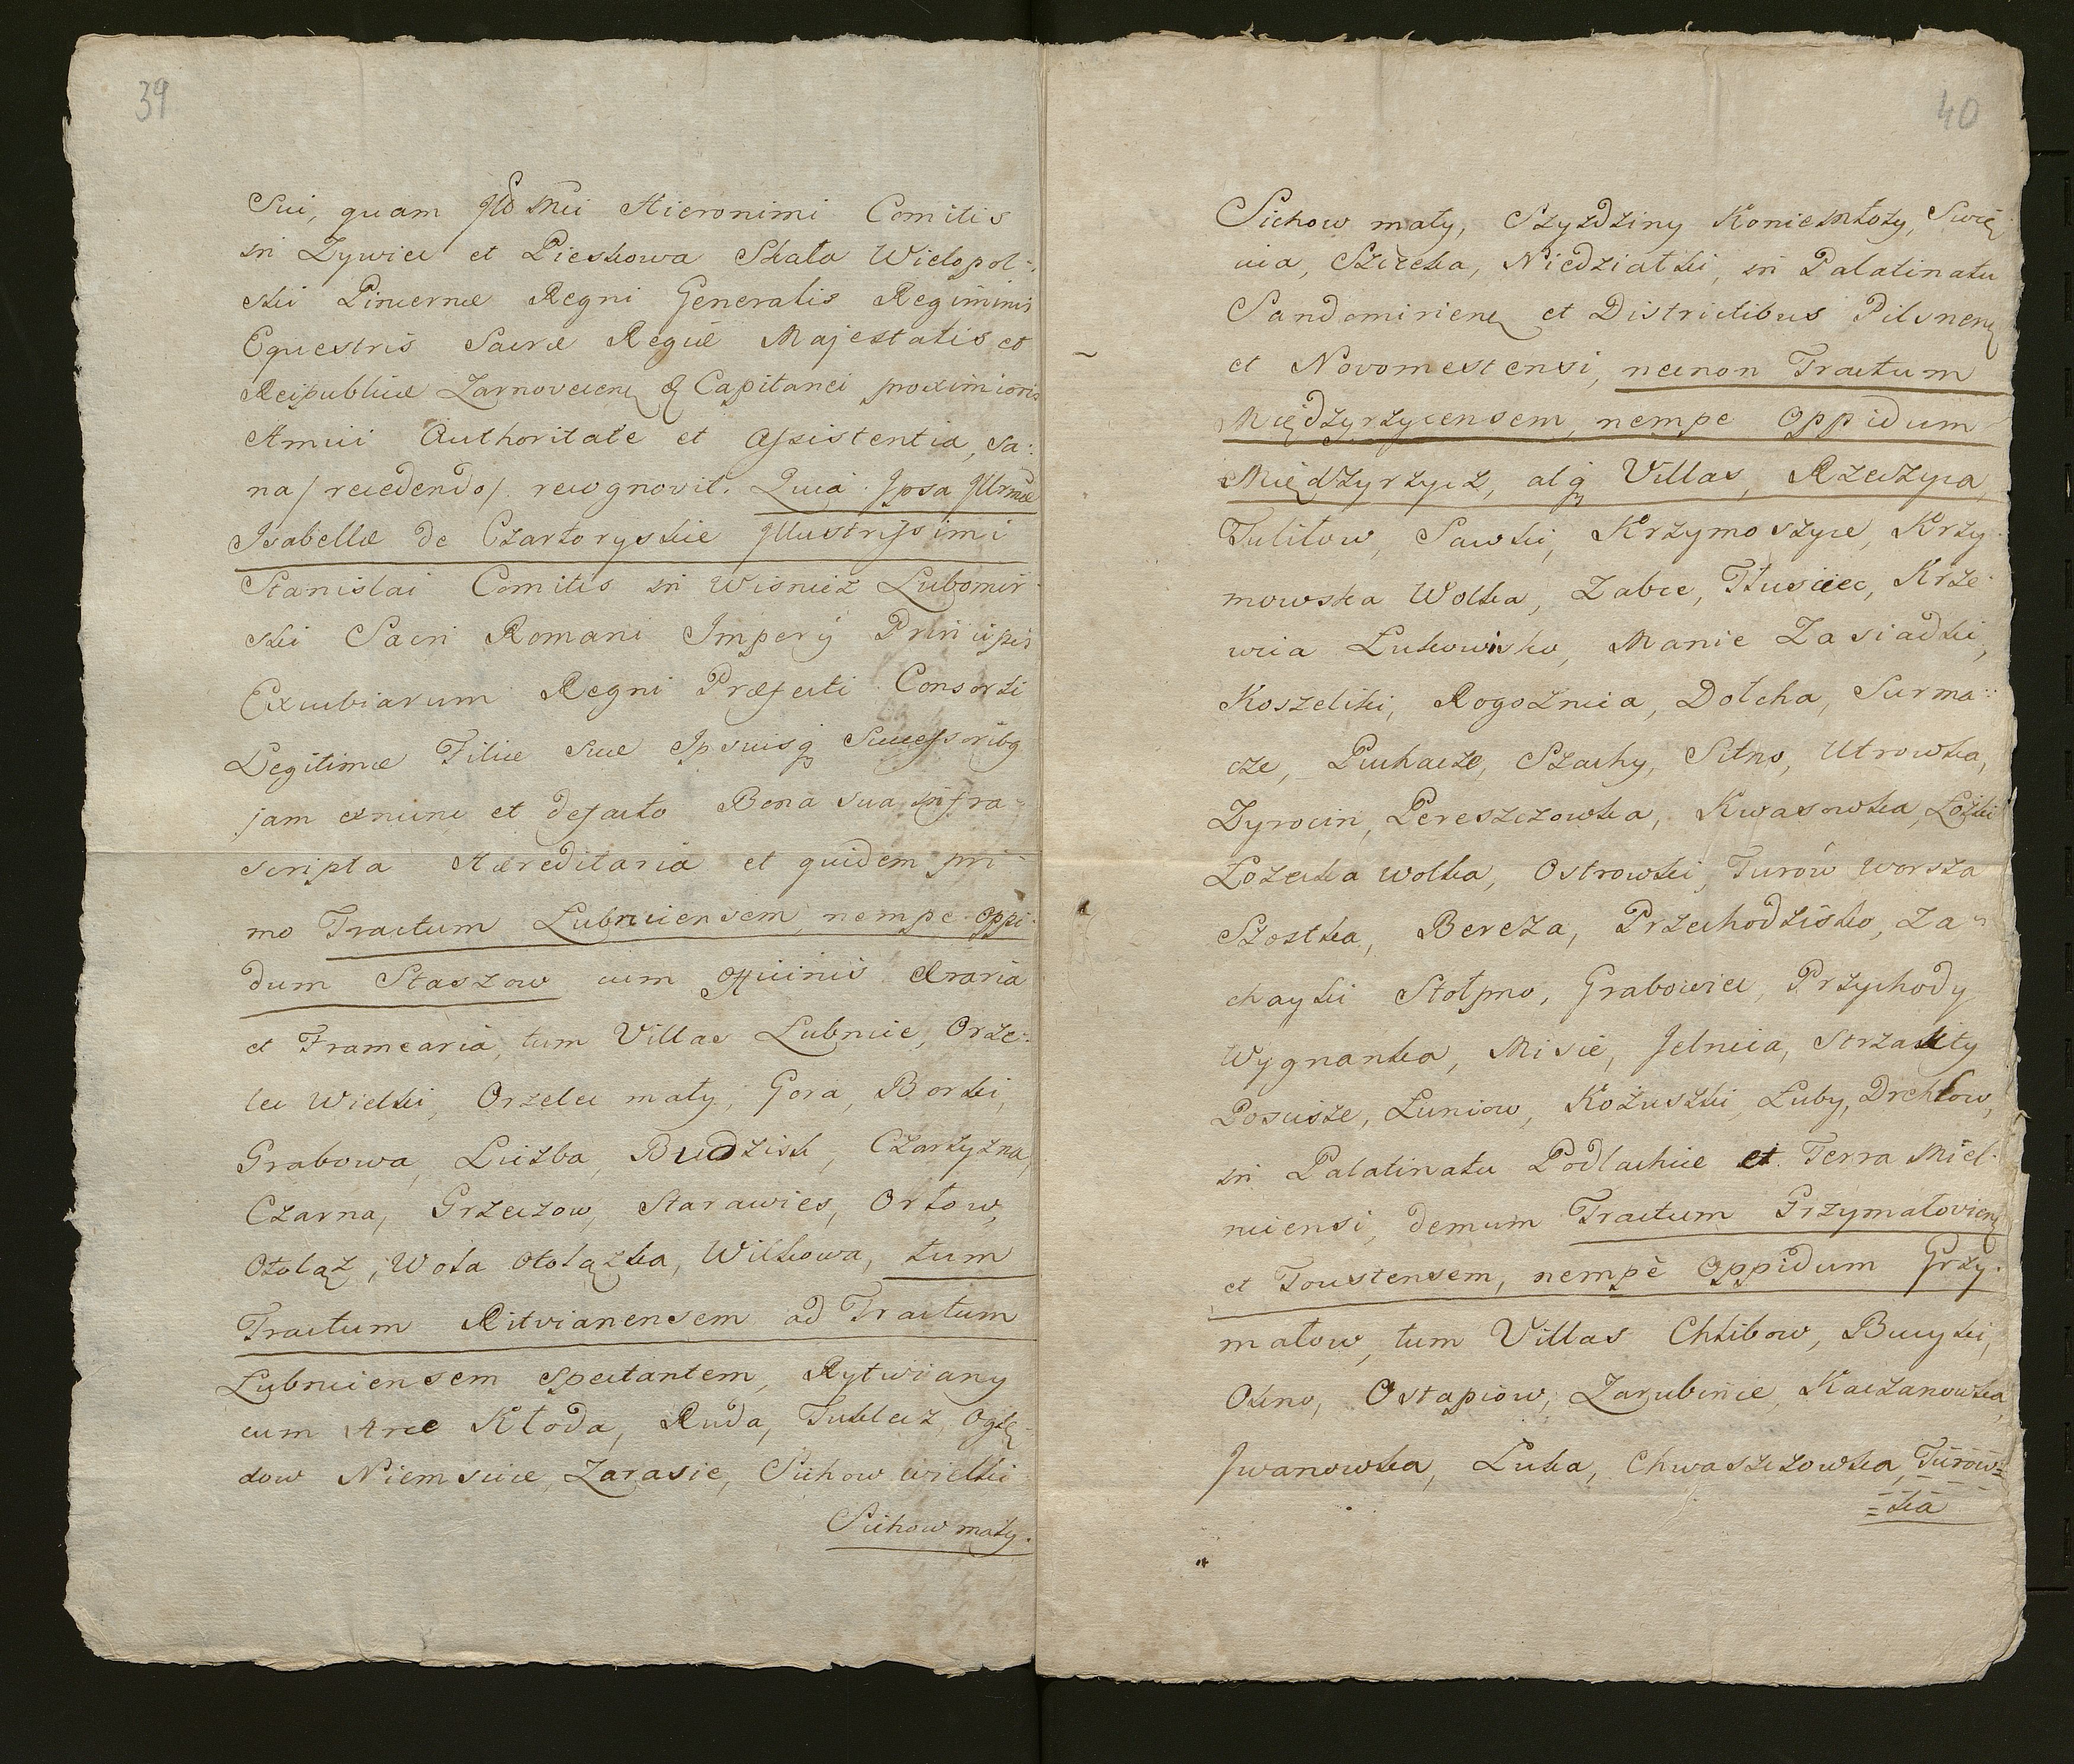 39
Sui, quam Hieronimi Comitis
in Zywiec et Pieskowa Skała Wielopol-
ski Pincernæ Regni Generalis Regiminis
Equestris Sacræ Regiæ Majestatis et
Reipublicæ Zarnovecen & Capitanei proximioris
Amici Authoritate et Assistentia, sa:
na / recedendo / recognovit. Quia Ipsa Illrmæ
Isabellæ de Czartoryskie Illustrissimi
Stanislai Comitis in Wisnicz Lubomir-
ski Sacri Romani Imperÿ Principis
Excubiarum Regni Præfecti Consorti
Legitimæ Filiæ suæ Ip suisq Successoribq
jam exnunc et defacto Bona sua infra-
scripta Hæreditaria et quidem pri-
mo Tractum Lubnicensem, nempe oppi-
dum Staszow cum officinis Æraria
et Framearia, tum Villas Lubnice, Orze-
lec Wielki, Orzelec mały, Gora, Borki,
Grabowa, Liczba, Budzisk, Czarzyzna,
Czarna, Grzeczow, Starawies, Orłow,
Otołąz, Wola Otołązka, Wilkowa, tum
Tractum Ritvianensem ad Tractum
Lubnicensem spectantem, Rytwiany
cum Arce Kłoda, Ruda, Tuklecz, Oglę-
dow Niemscice, Zarasie, Sichow wielki
Sichow mały.
40
Sichow mały, Szyzdziny Koniemłoty, Świę-
cia, Szczeka, Niedziałki, in Palatinatu
Sandomirien et Districtibus Pilsnen
et Novomestensi, necnon Tractum
Międzyrzycensem, nempe oppidum
Międzyrzycz, alq Villas, Rzeczyca,
Tuliłow, Sawki, Krzymoszyce, Krzy-
mowska Wolka, Zabce, Tłusciec, Krze-
wica Łukowisko, Manie Zasiadki,
Koszeliki, Rogoznica, Dołcha, Surma-
cze, Puchacze, Szachy, Sitno, Utrowka,
Zyrocin, Pereszczowka, Kwasowka, Łożki
Łozecka wolka, Ostrowki, Turów Worsza
Szostka, Bereza, Przechodzisko, Za-
chayki Stołpno, Grabowice, Przychody
Wygnanka, Misie, Jelnica, Strzakły
Posusze, Luniow, Kożuszki, Łuby, Drehlow,
in Palatinatu Podlachiæ et Terra Miel-
nicensi, demum Tractum Grzymałovien
et Toustensem, nempè oppidum Grzy-
małow, tum Villas Chlibow, Bucyki,
Okno, Ostapiow, Zarubińie, Kaczanowka,
Jwanowka, Łuka, Chwaszczowka, Turow-
ka